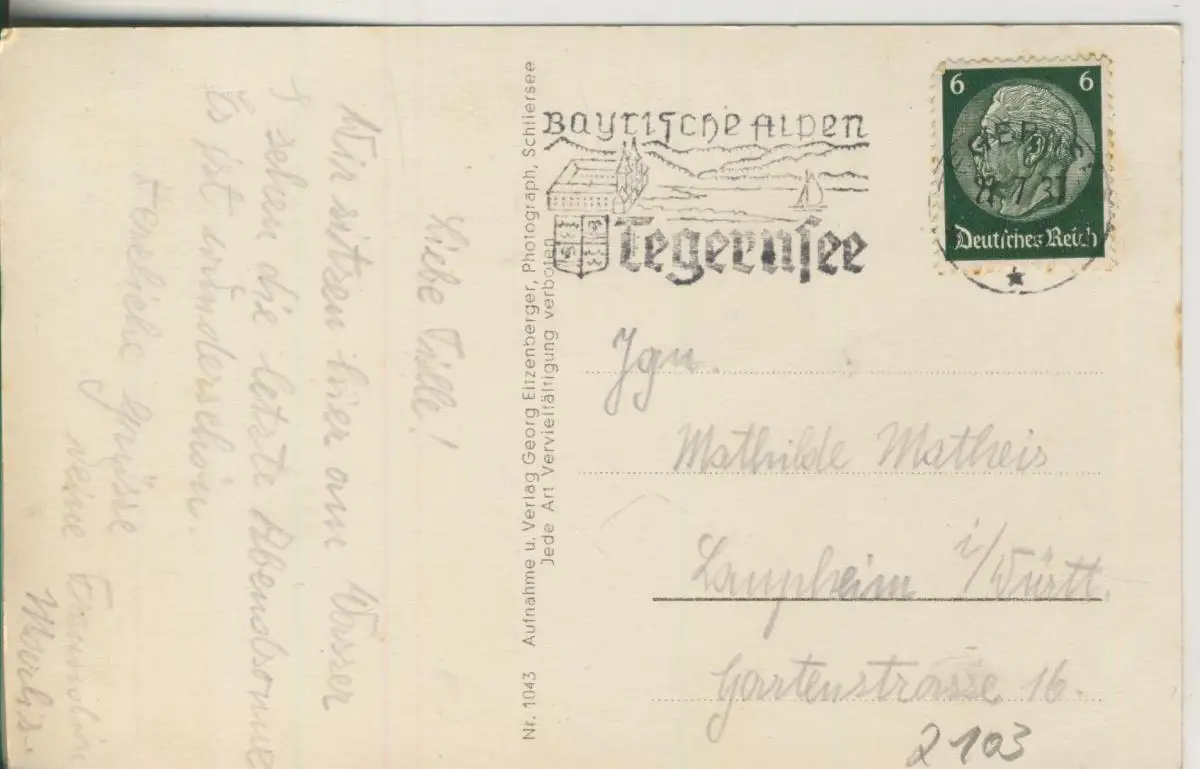 Liebe Tille!
Wir sitzen hier am Wasser
sehen die letzte Abendsonne
Es ist wunderschön.
Herzliche Grüsse
Deine
Nr. 1043 Aufnahme u. Verlag Georg Etzenberger, Photograph, Schliersee
Jede Art Vervielfältigung verboten
Bayrische Alpen
Tegernsee
6 6
Deutsches Reich
Mathilde Matheis
Laupheim i/Württ.
Gartenstrasse 16.
2103